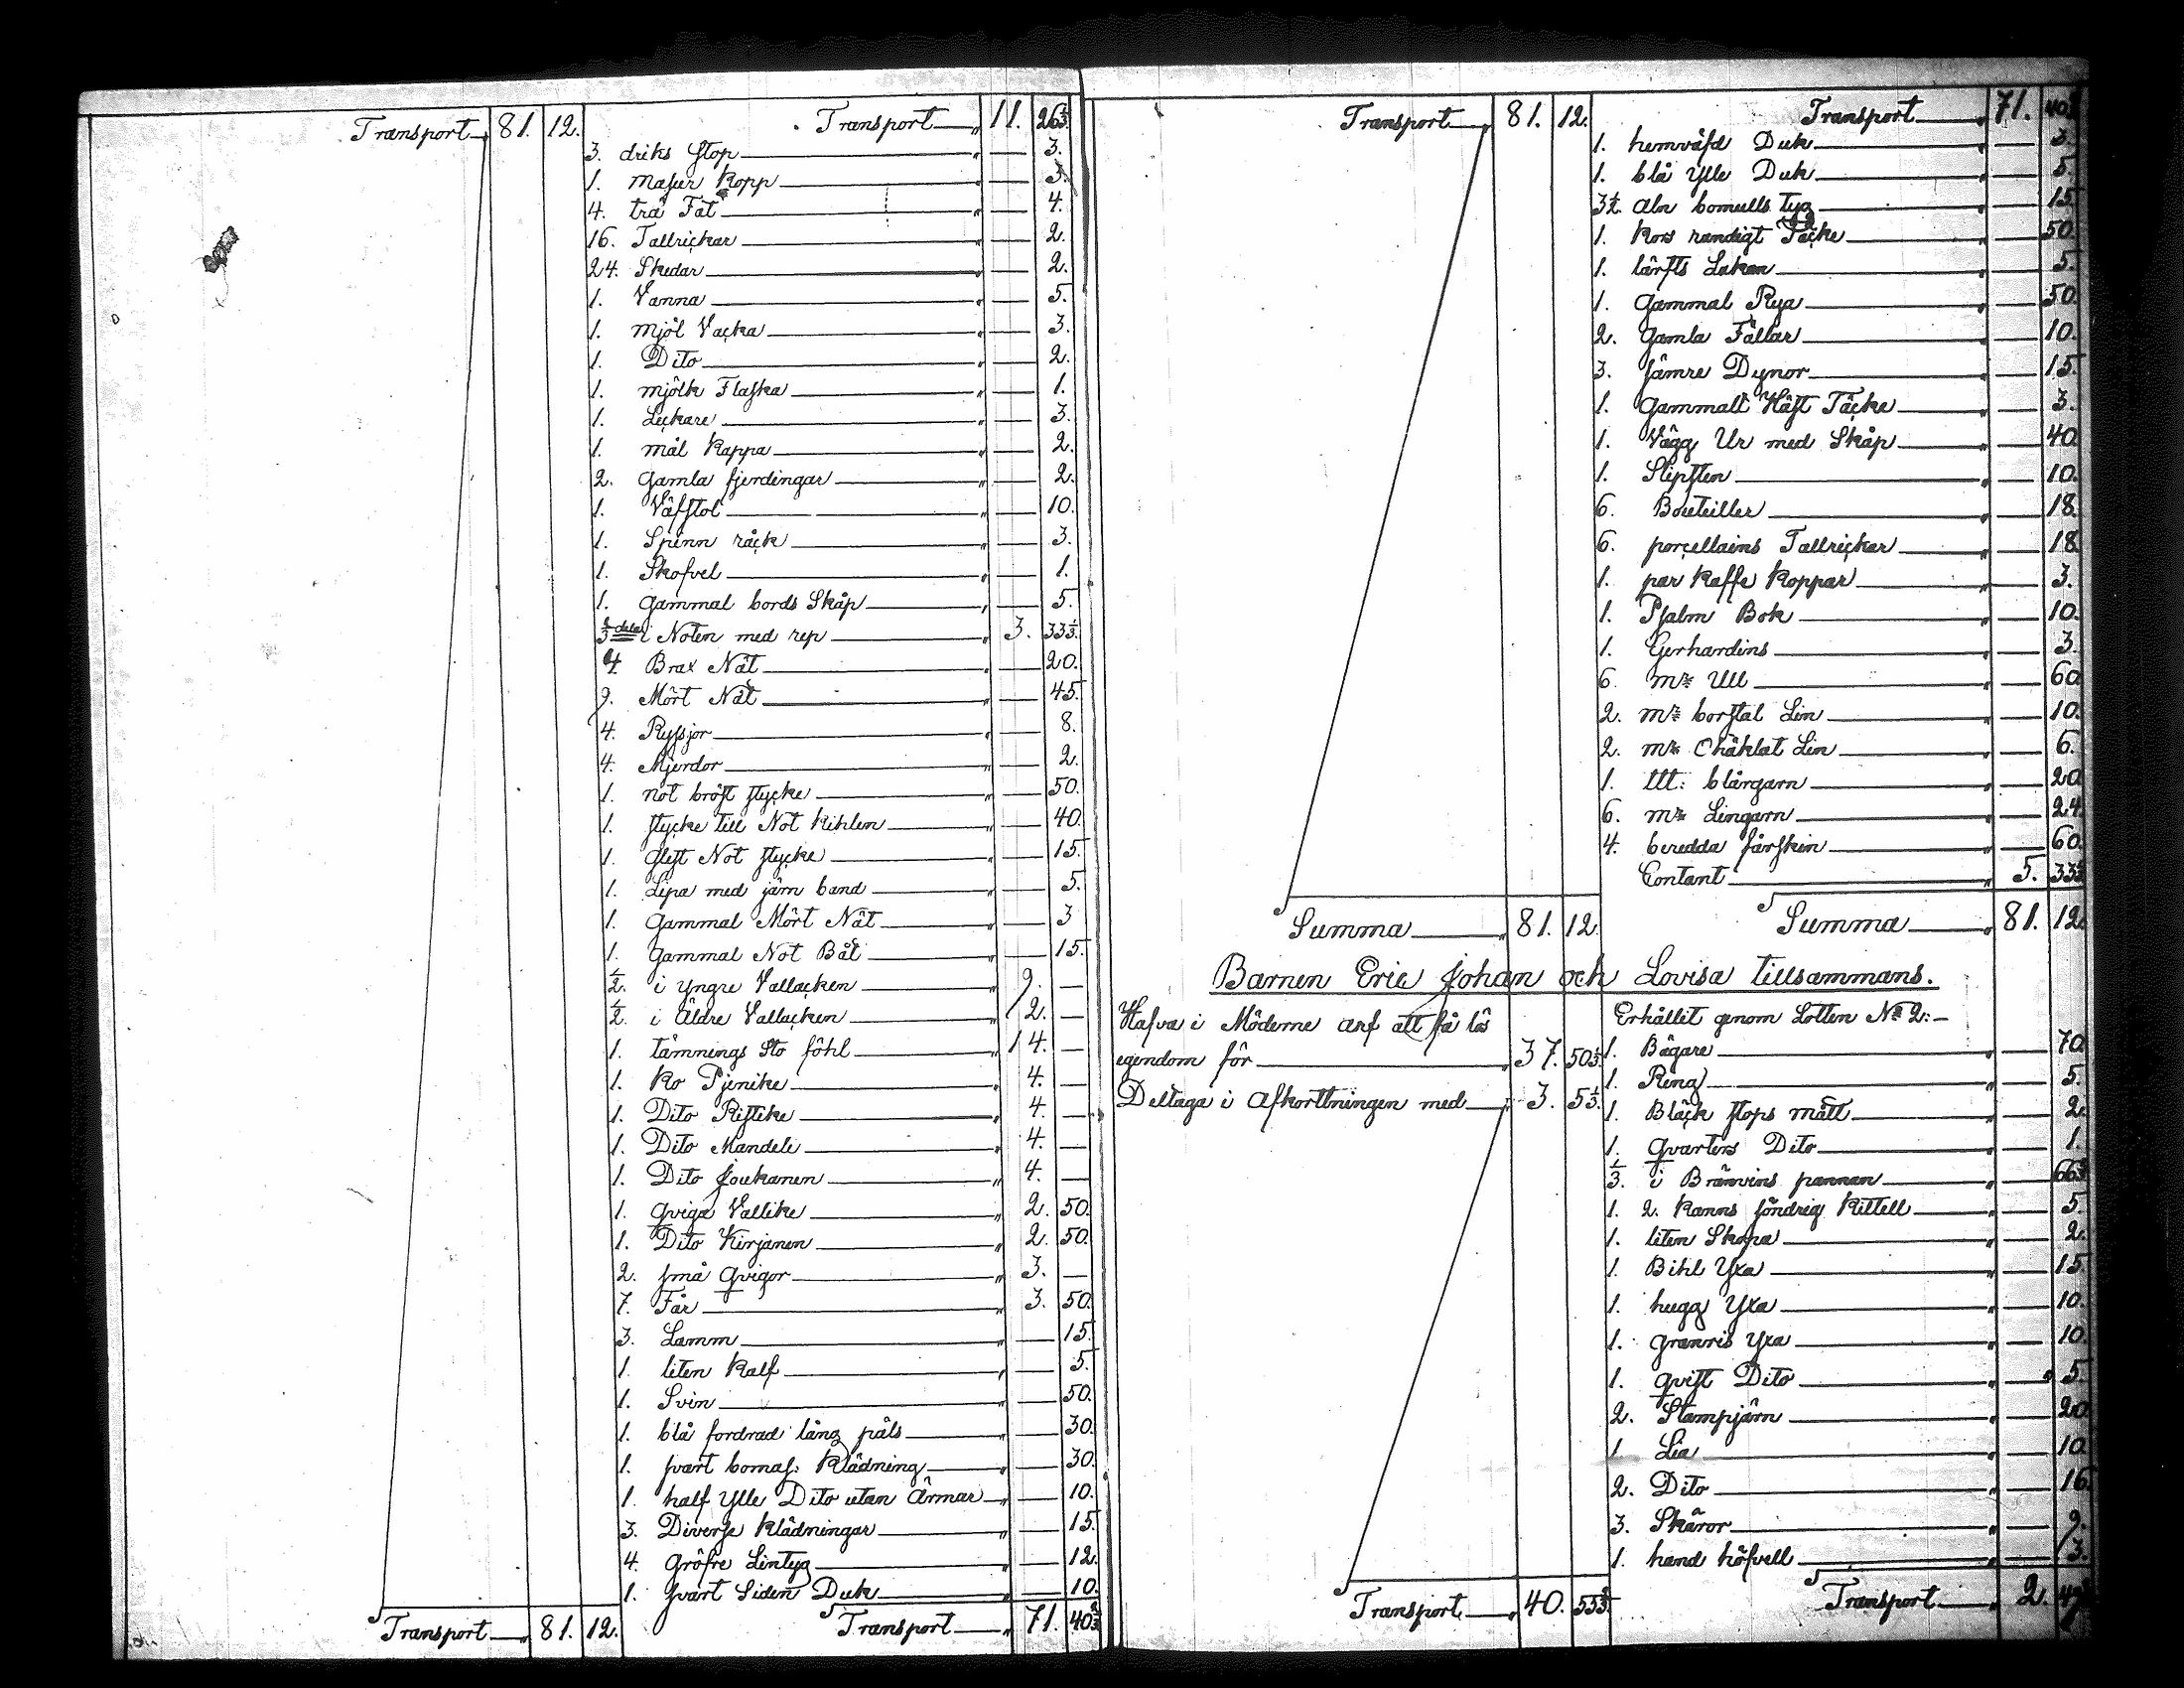 Transport 81. 12.
Transport 11. 26⅓.
3. driks Stop 3.
1. masur Kopp 3.
4. trä Fat 4.
16. Tallrickar 2.
24. Skedar 2.
1. Vanna 5.
1. mjöl Vacka 3.
1. Dito 2.
1. mjölk Flaska 1.
1. Leckare 3.
1. mål Kappa 2.
2. gamla fjerdingar 2.
1. Väfstol 10.
1. Spinn råck 3.
1. Skofvel 1.
1. gammal bords Skåp 5.
⅓ delar i Noten med rep 3. 33⅓.
4. Brax Nät 20.
9. Mört Nät 45.
4. Ryssjor 8.
4. Mjerdor 2.
1. not bröst stycke 50.
1. stycke till Not Kihlen 40.
1. glest Not stycke 15.
1. Lipa med järn band 5.
1. gammal Mört Nät 3
1. gammal Not Båt 15.
½. i yngre Vallacken 9. —
½. i Äldre Vallacken 2. —
1. tämnings Sto föhl 14. —
1. Ko Pjenike 4. —
1. Dito Ristike 4. —
1. Dito Mandeli 4. —
1. Dito Joukanen 4. —
1. qviga Vallike 2. 50.
1. Dito Kirjanen 2. 50.
2. små qvigor 3. —
7. Får 3. 50.
3. Lamm 15.
1. liten Kalf 5.
1. Svin 50.
1. blå fordrad lång päls 30.
1. svart bomas: Klädning 30.
1. half Ylle Dito utan Ärmar 10.
3. Diverse Klädningar 15.
4. gröfre Lintyg 12.
1. svart Siden Duk 10.
Transport 81. 12.
Transport 71. 40⅔.
Transport 81. 12.
Transport 71. 40⅔
1. hemväfd Duk 3.
1. blå Ylle Duk 5.
3½. aln bomulls tyg 15
1. Kors randigt Täcke 50.
1. lärfts Lakan 5.
1. gammal Rya 50.
2. gamla Fällar 10.
3. sämre Dynor 15.
1. gammalt Häst Täcke 3.
1. Vägg Ur med Skåp 40.
1. Slipsten 10.
6. Bouteiller 18.
6. porcellains Tallrickar 18
1. par Kaffe Koppar 3.
1. Psalm Bok 10.
1. Gerhardins 3.
6. mr Ull 60
2. mr borstat Lin 10.
2. mr Ohäklat Lin 6.
1. ltt: blångarn 20
6. mr Lingarn 24.
4. beredda fårskin 60.
Contant 5. 33⅓
Summa 81. 12.
Summa 81. 12.
Barnen Eric Johan och Lovisa tillsammans.
Hafva i Möderne arf att få lös
egendom för 37. 50⅓.
Deltaga i Afkorttningen med 3. 5⅓.
Erhållit genom Lotten No 2:—
1. Bägare 70.
1. Ring 5.
1. Bläck stops mått 2.
1. qvarters Dito 1.
⅓. i Bränvins pannan 66⅔
1. 2. Kanns söndrig Kittell 5.
1. liten Skopa 2.
1. Bihl Yxa 15.
1. hugg Yxa 10.
1. granris Yxa 10.
1. qvist Dito 5.
2. Stampjärn 20.
1. Lia 10.
2. Dito 16.
3. Skäror 9.
1. hand höfvell 3.
Transport 40. 55⅔.
Transport 2.